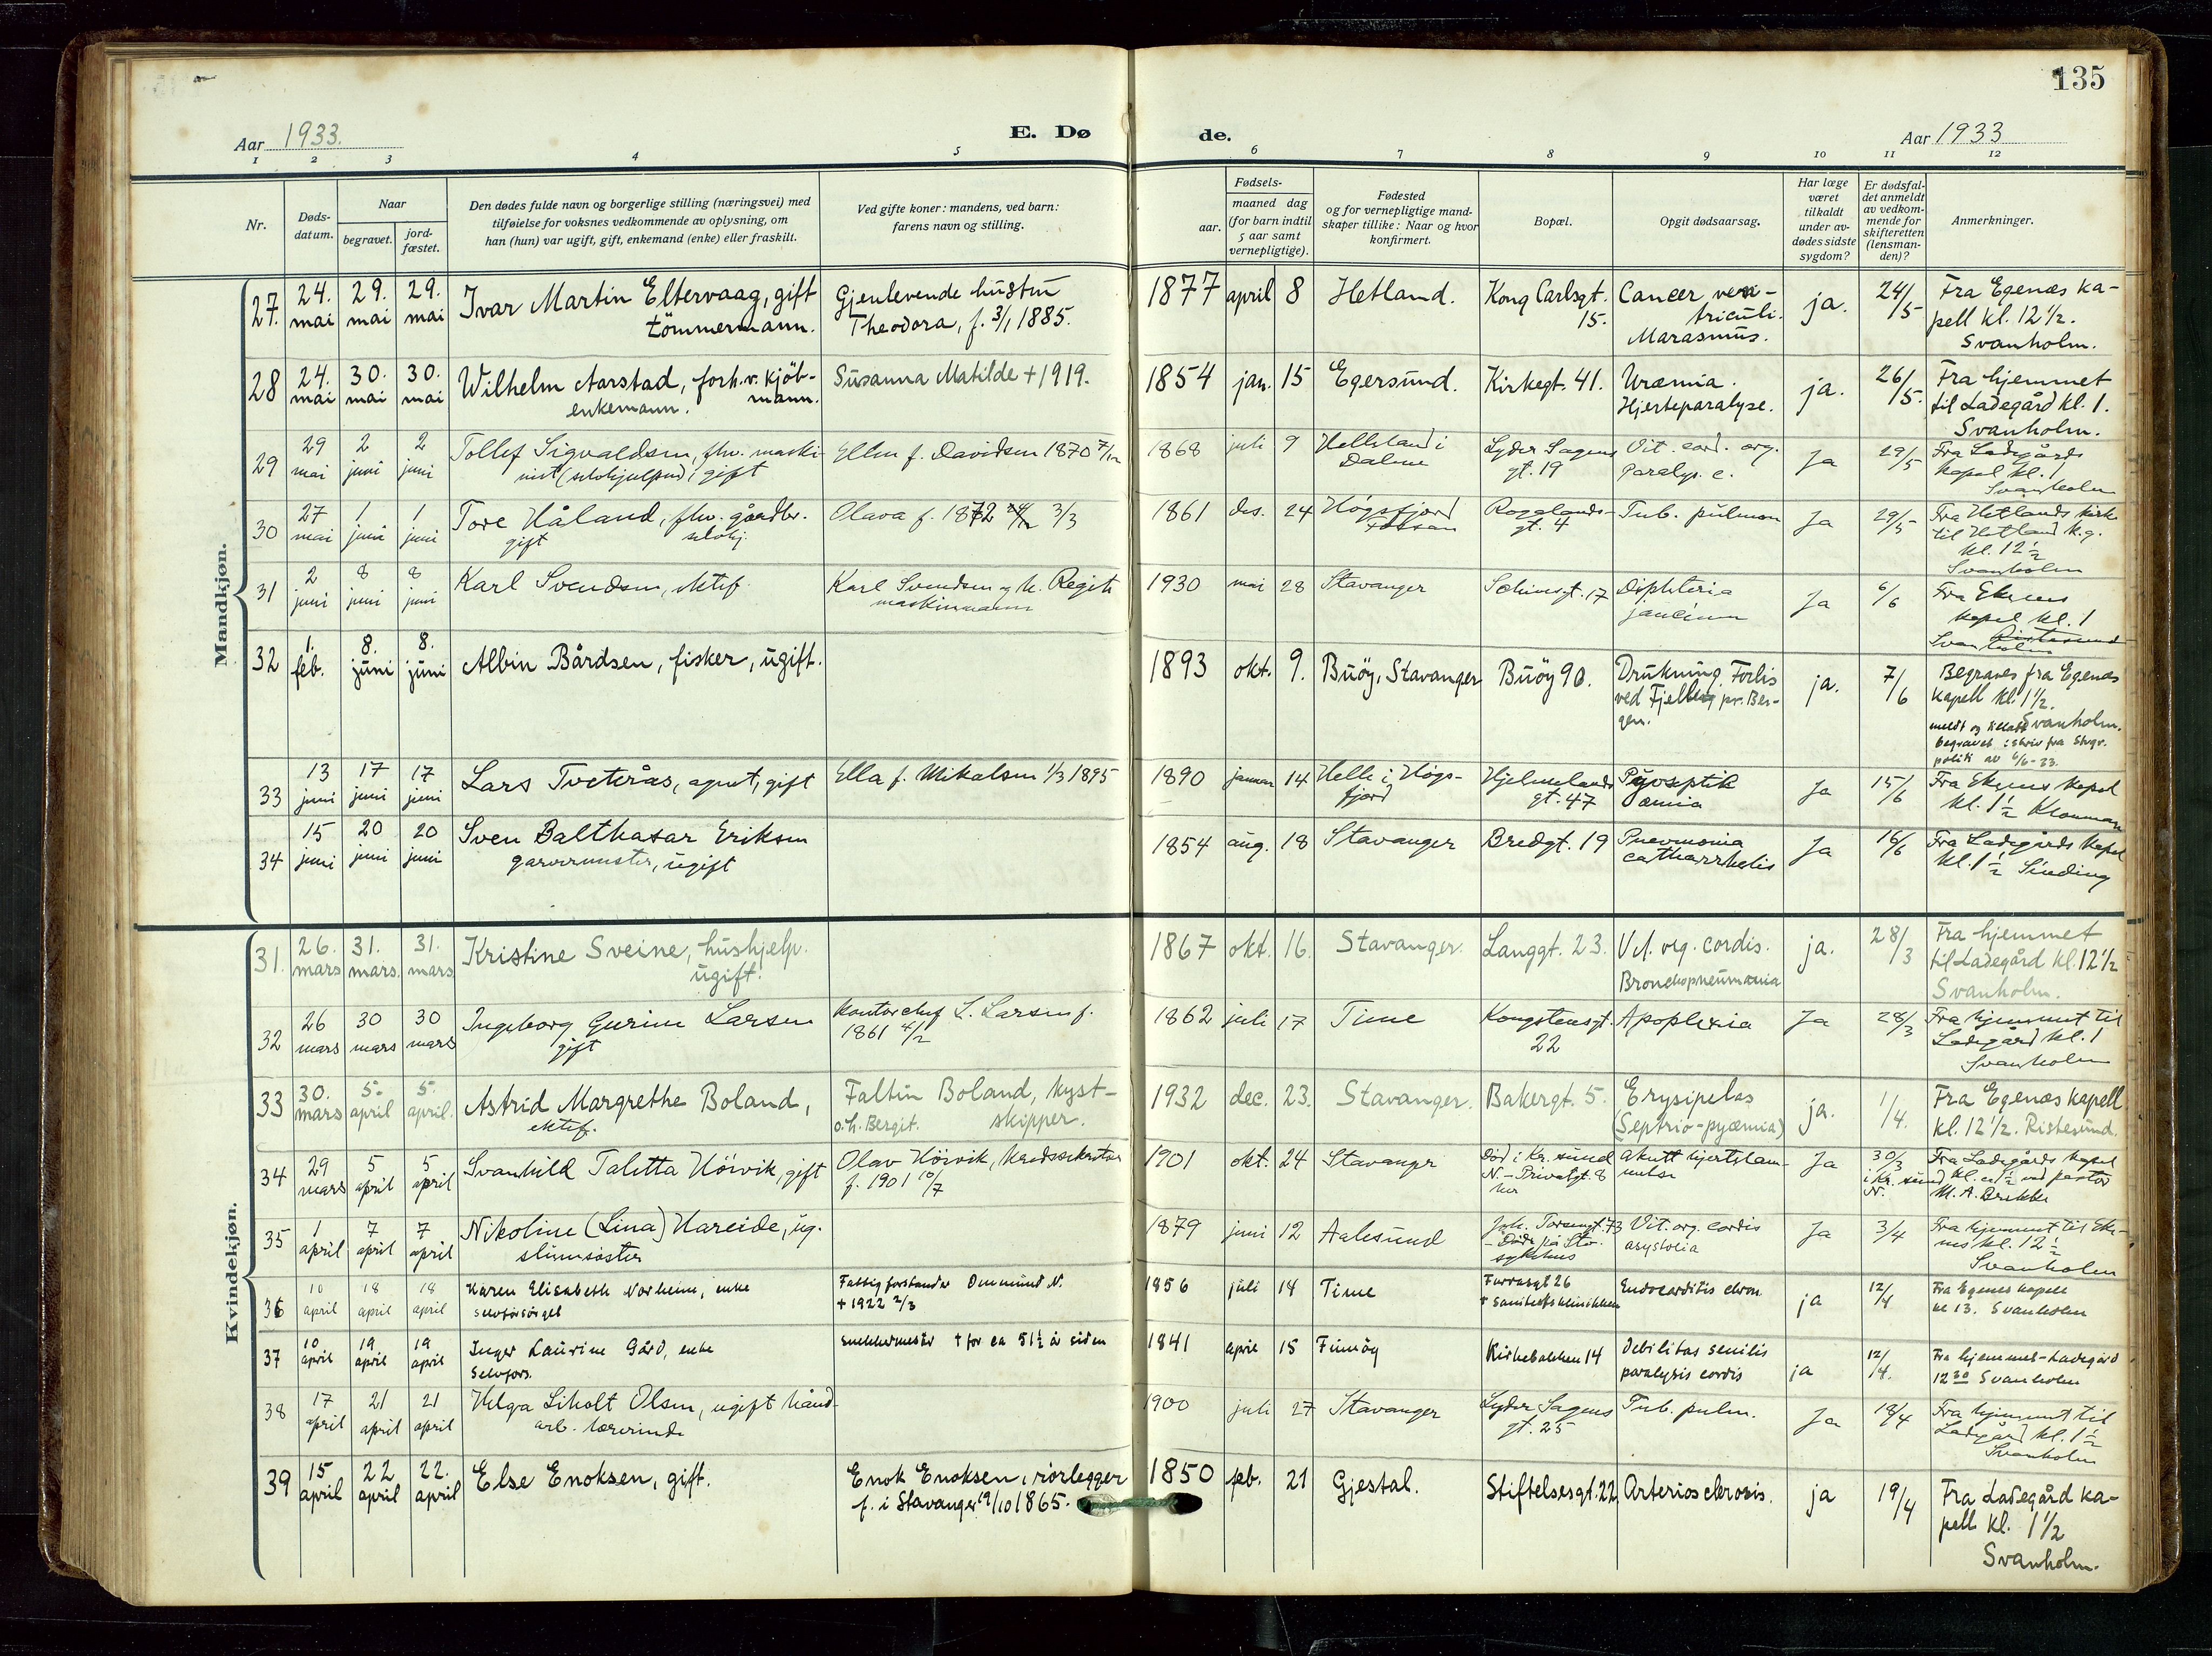 135
Aar 1933.
E. Dø de.
Aar 1933
1 2 3 4 5 6 7 8 9 10 11 12
Nr.
Døds-
datum.
Naar
begravet.
jord-
fæstet.
Den dødes fulde navn og borgerlige stilling (næringsvei) med
tilføielse for voksnes vedkommende av oplysning, om
han (hun) var ugift, gift, enkemand (enke) eller fraskilt.
Ved gifte koner: mandens, ved barn:
farens navn og stilling.
Fødsels-
aar.
maaned dag
(for barn indtil
5 aar samt
vernepligtige).
Fødested
og for vernepligtige mand-
skaper tillike: Naar og hvor
konfirmert.
Bopæl.
Opgit dødsaarsag.
Har læge
været
tilkaldt
under av-
dødes sidste
sygdom?
Er dødsfal-
det anmeldt
av vedkom-
mende for
skifteretten
(lensman-
den)?
Anmerkninger.
Mandkjøn.
27. 24. mai 29. mai 29. mai Ivar Martin Eltervaag, gift
tömmermann.
Gjenlevende hustru
Theodora, f. 3/1 1885.
1877 april 8 Hetland. Kong Carlsgt.
15.
Cancer ven-
triculi.
Marasmus.
ja. 24/5 Fra Egenæs ka-
pell kl. 12 1/2.
Svanholm.
28 24. mai 30. mai 30. mai Wilhelm Aarstad, forh.v. kjöb-
enkemann. mann.
Susanna Matilde + 1919.
1854 jan. 15 Egersund. Kirkegt. 41. Uræmia.
Hjerteparalyse.
ja. 26/5. Fra hjemmet
til Ladegård kl. 1.
Svanholm.
29 29 mai 2 juni 2 juni Tollef Sigvaldsen, fhv. maski-
nist (selvhjulpen) gift
Ellen f. Davidsen 1870 7/12
1868 juli 9 Helleland i
Dalene
Lyder Sagens
gt. 19
Vit. cord. org.
Paralys. c.
Ja 29/5 Fra Ladegårds
kapel kl. 1
Svanholm
30 27 mai 1 juni 1 juni Tore Håland, fhv. gårdbr.
gift selvhj.
Olava f. 1872 3/3
1861 des. 24 Høgsfjord
Rogalands-
gt. 4
Tub. pulmon
Ja 29/5 Fra Hetlands kirke
til Hetland k.g.
kl. 12 1/2
Svanholm
31 2 juni 8 juni 8 juni Karl Svendsen, ektef.
Karl Svendsen og h. Regite
maskinmann
1930 mai 28 Stavanger
Diphteria
faucium
Ja 6/6 Fra Ekenes
kapel kl. 1
Svanholm
32 1. feb. 8. juni 8. juni Albin Bårdsen, fisker, ugift.
1893 okt. 9. Buöy, Stavanger Buöy 90. Drukning. Forlis
ved Fjellberg pr. Ber-
gen.
ja. 7/6 Begraves fra Egenæs
kapell kl. 1 1/2.
Svanholm.
meldt og tillatt
begravet: skriv fra Stvgr.
politi av 6/6-33.
33 13 juni 17 juni 17 juni Lars Tveterås, agent, gift
Ella f. Mikalsen 1/3 1895
1890 januar 14 Helle i Høgs-
fjord
Hjelmelands
gt. 47
Pyoseptik
æmia
Ja 15/6 Fra Ekenes kapel
kl. 1 1/2 Klouman
34 15 juni 20 juni 20 juni Sven Balthasar Eriksen
garvermester, ugift
1854 aug. 18 Stavanger Bredgt. 19 Pneumonia
catharrhalis
Ja 16/6 Fra Ladegårds kapel
kl. 1 1/2 Sinding
Kvindekjøn.
31. 26. mars 31. mars. 31. mars Kristine Sveine, hushjelp.
ugift.
1867 okt. 16. Stavanger. Langgt. 23. Vit. org. cordis.
Bronchopneumonia
ja. 28/3 Fra hjemmet
til Ladegård kl. 12 1/2
Svanholm.
32 26 mars 30 mars 30 mars Ingeborg Gurine Larsen
gift
Kontorchef L. Larsen f.
1861 4/2
1862 juli 17 Time Kongstensgt.
22
Apoplexia
Ja 28/3 Fra hjemmet til
Ladegård kl. 1
Svanholm
33 30. mars 5. april 5. april. Astrid Margrethe Boland,
ektef.
Faltin Boland, kyst-
o.h. Bergit. skipper.
1932 dec. 23. Stavanger. Bakergt. 5. Erysipelas
(Septrio-pyæmia)
ja. 1/4. Fra Egenæs kapell
kl. 12 1/2. Ristesund.
34 29 mars 5 april 5 april Svanhild Taletta Hörvik, gift
Olav Hörvik,
f. 1901 10/7
1901 okt. 24 Stavanger Död i Kr. sund
N. - Privatgt. 8
her
akutt hjertelam-
melse
Ja 30/3
i Kr. sund
N.
Fra Ladegårds kapel
ved pastor
M. A. Brekke
35 1 april 7 april 7 april Nikoline (Lina) Hareide, ug.
1879 juni 12 Aalesund
Vit. org. cordis
asystolia
Ja 3/4 Fra hjemmet til Eke-
nes kl. 12 1/2
Svanholm
36 10 april 18 april 18 april Karen Elisabeth Norheim, enke
selvforsörget
Fattigforstander Ommund N.
+ 1922 2/3
1856 juli 14 Time Furrasgt 26
Endocarditis chron
ja 12/4 Fra Egenes kapell
kl 13. Svanholm
37 10 april 19 april 19 april Inger Laurine Gård, enke
Selvfors.
snekkermester + for ca 51 1/2 år siden
1841 april 15 Finnöy Kirkebakken 14 Debilitas senilis
paralysis cordis
ja 12/4. Fra hjemmet-Ladegård
12 30 Svanholm
38 17 april 21 april 21 april Helga Liholt Olsen, ugift hånd-
arb. lærerinde
1900 juli 27 Stavanger Lyder Sagens
gt. 25
Tub. pulm.
Ja 18/4 Fra hjemmet til
Ladegård kl. 1 1/2
Svanholm
39 15 april 22 april 22. april Else Enoksen, gift.
Enok Enoksen, rörlegger
f. i Stavanger 19/10 1865.
1850 feb. 21 Gjestal. Stiftelsesgt. 22 Arteriosclerosis.
ja 19/4 Fra Ladegård ka-
pell kl. 1 1/2
Svanholm.